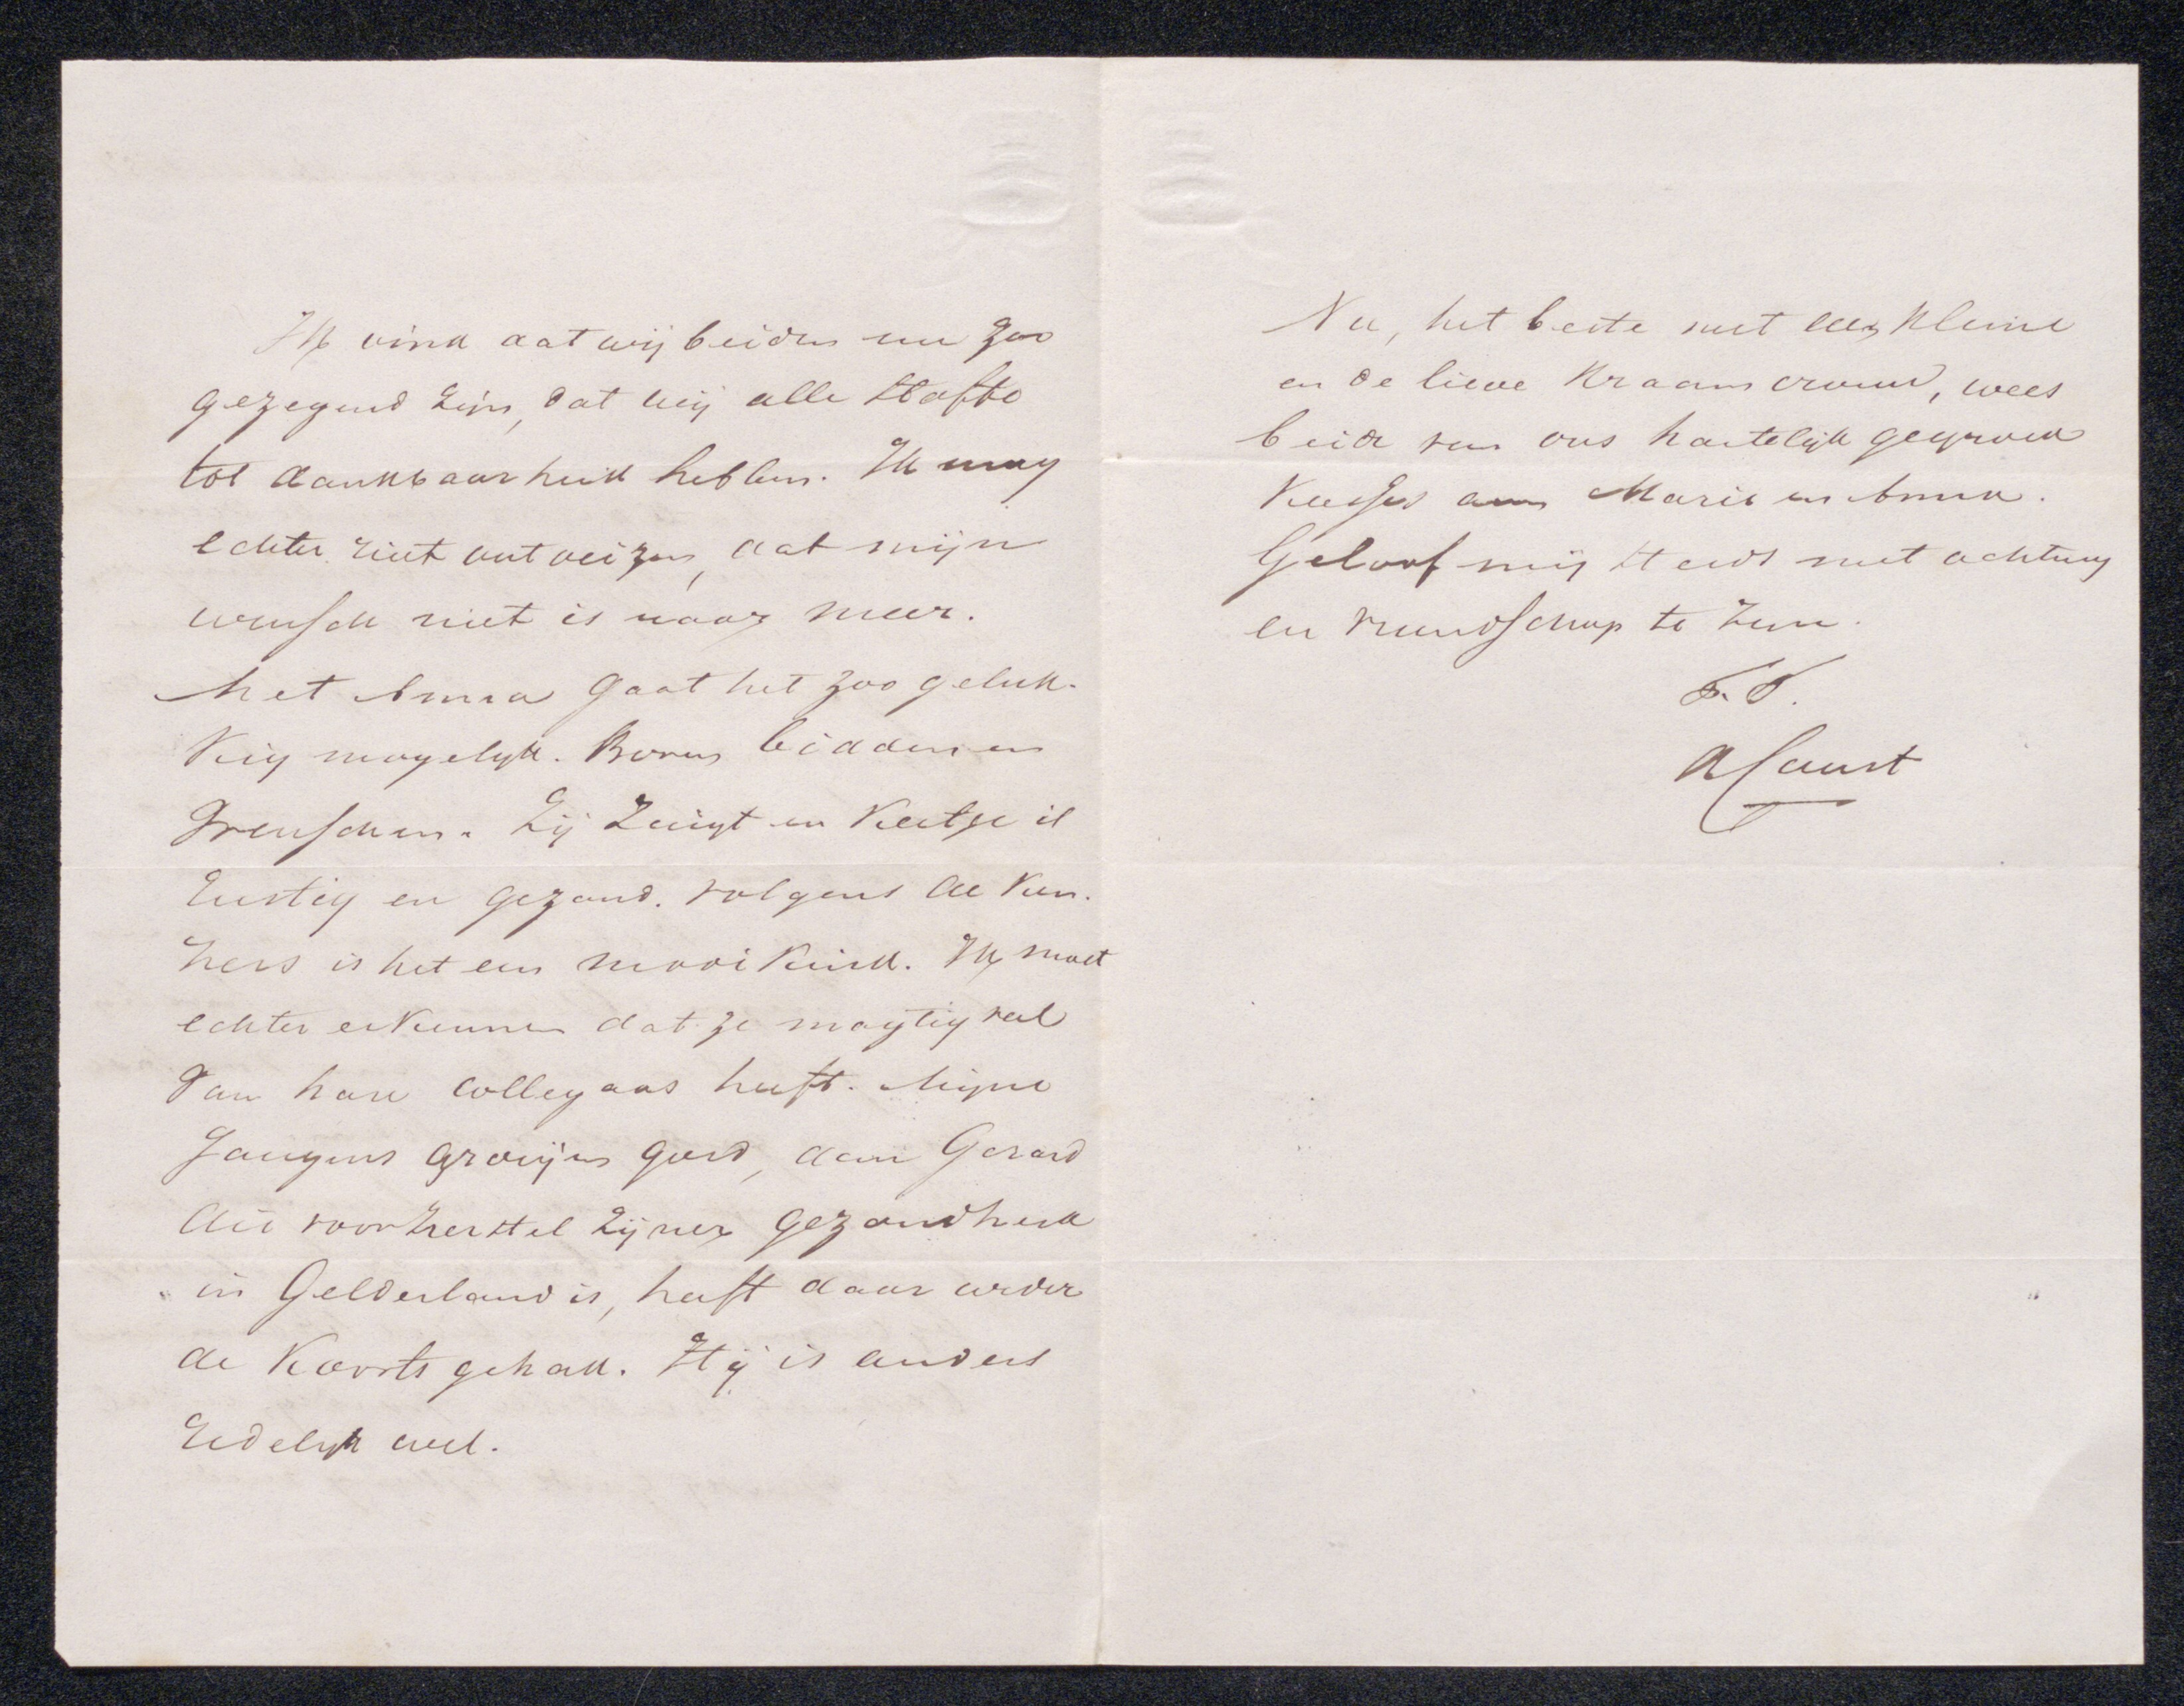 Ik vind dat wij beiden nu zoo
gezegend zijn, dat wij alle stoffe
tot dankbaarheid hebben. Ik mag
echter niet ontveizen, dat mijn
wensch niet is naar meer.
Met Anna gaat het zoo geluk-
kig mogelijk. Boven bidden en
wenschen. Zij zuigt en Keetje is
lustig en gezond. volgens de ken-
ners is het een mooi kind. Ik moet
echter erkennen dat ze magtig veel
van hare collegaas heeft. Mijne
jongens groeijen goed, den Gerard
die voor herstel zijner gezondheid
in Gelderland is, heeft daar weder
de Koorts gehad. Hij is anders
redelijk wel.
Nu, het beste met de kleine
en de lieve Kraamvrouw, wees
beide van ons hartelijk gegroed
Kusjes aan Marie en Anna.
Geloof mij steeds met achting
en vriendschap te zijn.
T. T.